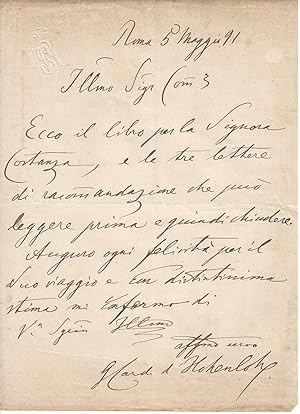 Roma 5 Maggio 91
Illmo Sigr Com
Ecco il libro per la Signora
Costanza, e le tre lettere
di racomandazione che può
leggere prima e quindi chiudere.
Auguro ogni felicità per il
Suo viaggio e con distintissima
stima mi confermo di
V.a Illma
affmo servo
G Card d'Hohenlohe